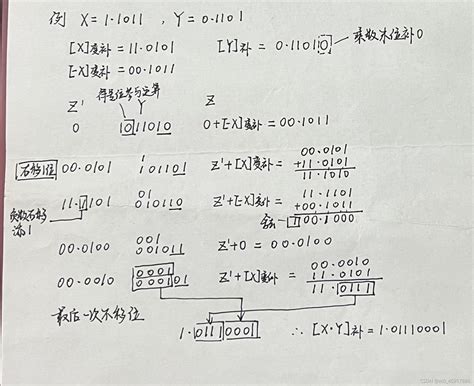 例 X=1.1011 , Y=0.1101
[X]变补=11.0101 [Y]补=0.11010 乘数末位补0
[-X]变补=00.1011
符号位参与运算
Z' Y Z
0 1011010 0+[-X]变补=00.1011
右移1位 00.0101 1 101101 Z'+[X]变补= 00.0101
+11.0101
11.1010
11.1101 01 010110 Z'+[-X]变补= 11.1101
+00.1011
负数右移添1 舍去 1 00.1000
00.0100 001 001011 Z'+0=00.0100
00.0010 0001 000101 Z'+[X]变补= 00.0010
11.0101
11.0111
最后一次不移位
1.01110001 ∴[X·Y]补=1.01110001